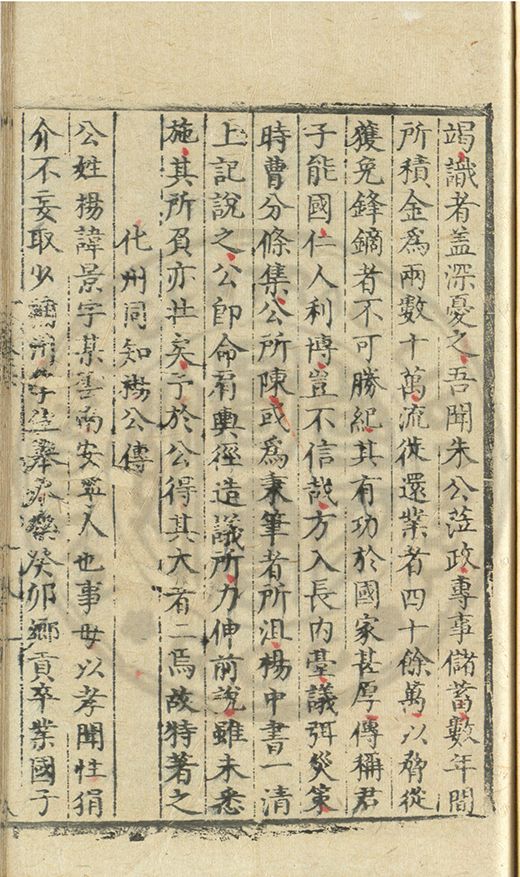 竭識者盖深憂之吾聞朱公蒞政專事儲蓄數年間
所積金為兩數十萬流徙還業者四十餘萬以脅從
獲免鋒鏑者不可勝紀其有功於國家甚厚傳稱君
子能國仁人利博豈不信哉方入長内臺議弭災策
時曹分條集公所陳或為秉筆者所沮楊中書一清
上記說之公即命肩輿徑造議所力伸前說雖未悉
施其所負亦壯矣予於公得其大者二焉故特著之
化州同知楊公傳
公姓楊諱景字某雲南安寧人也事母以孝聞性狷
介不妄取少癸卯鄉貢卒業國子